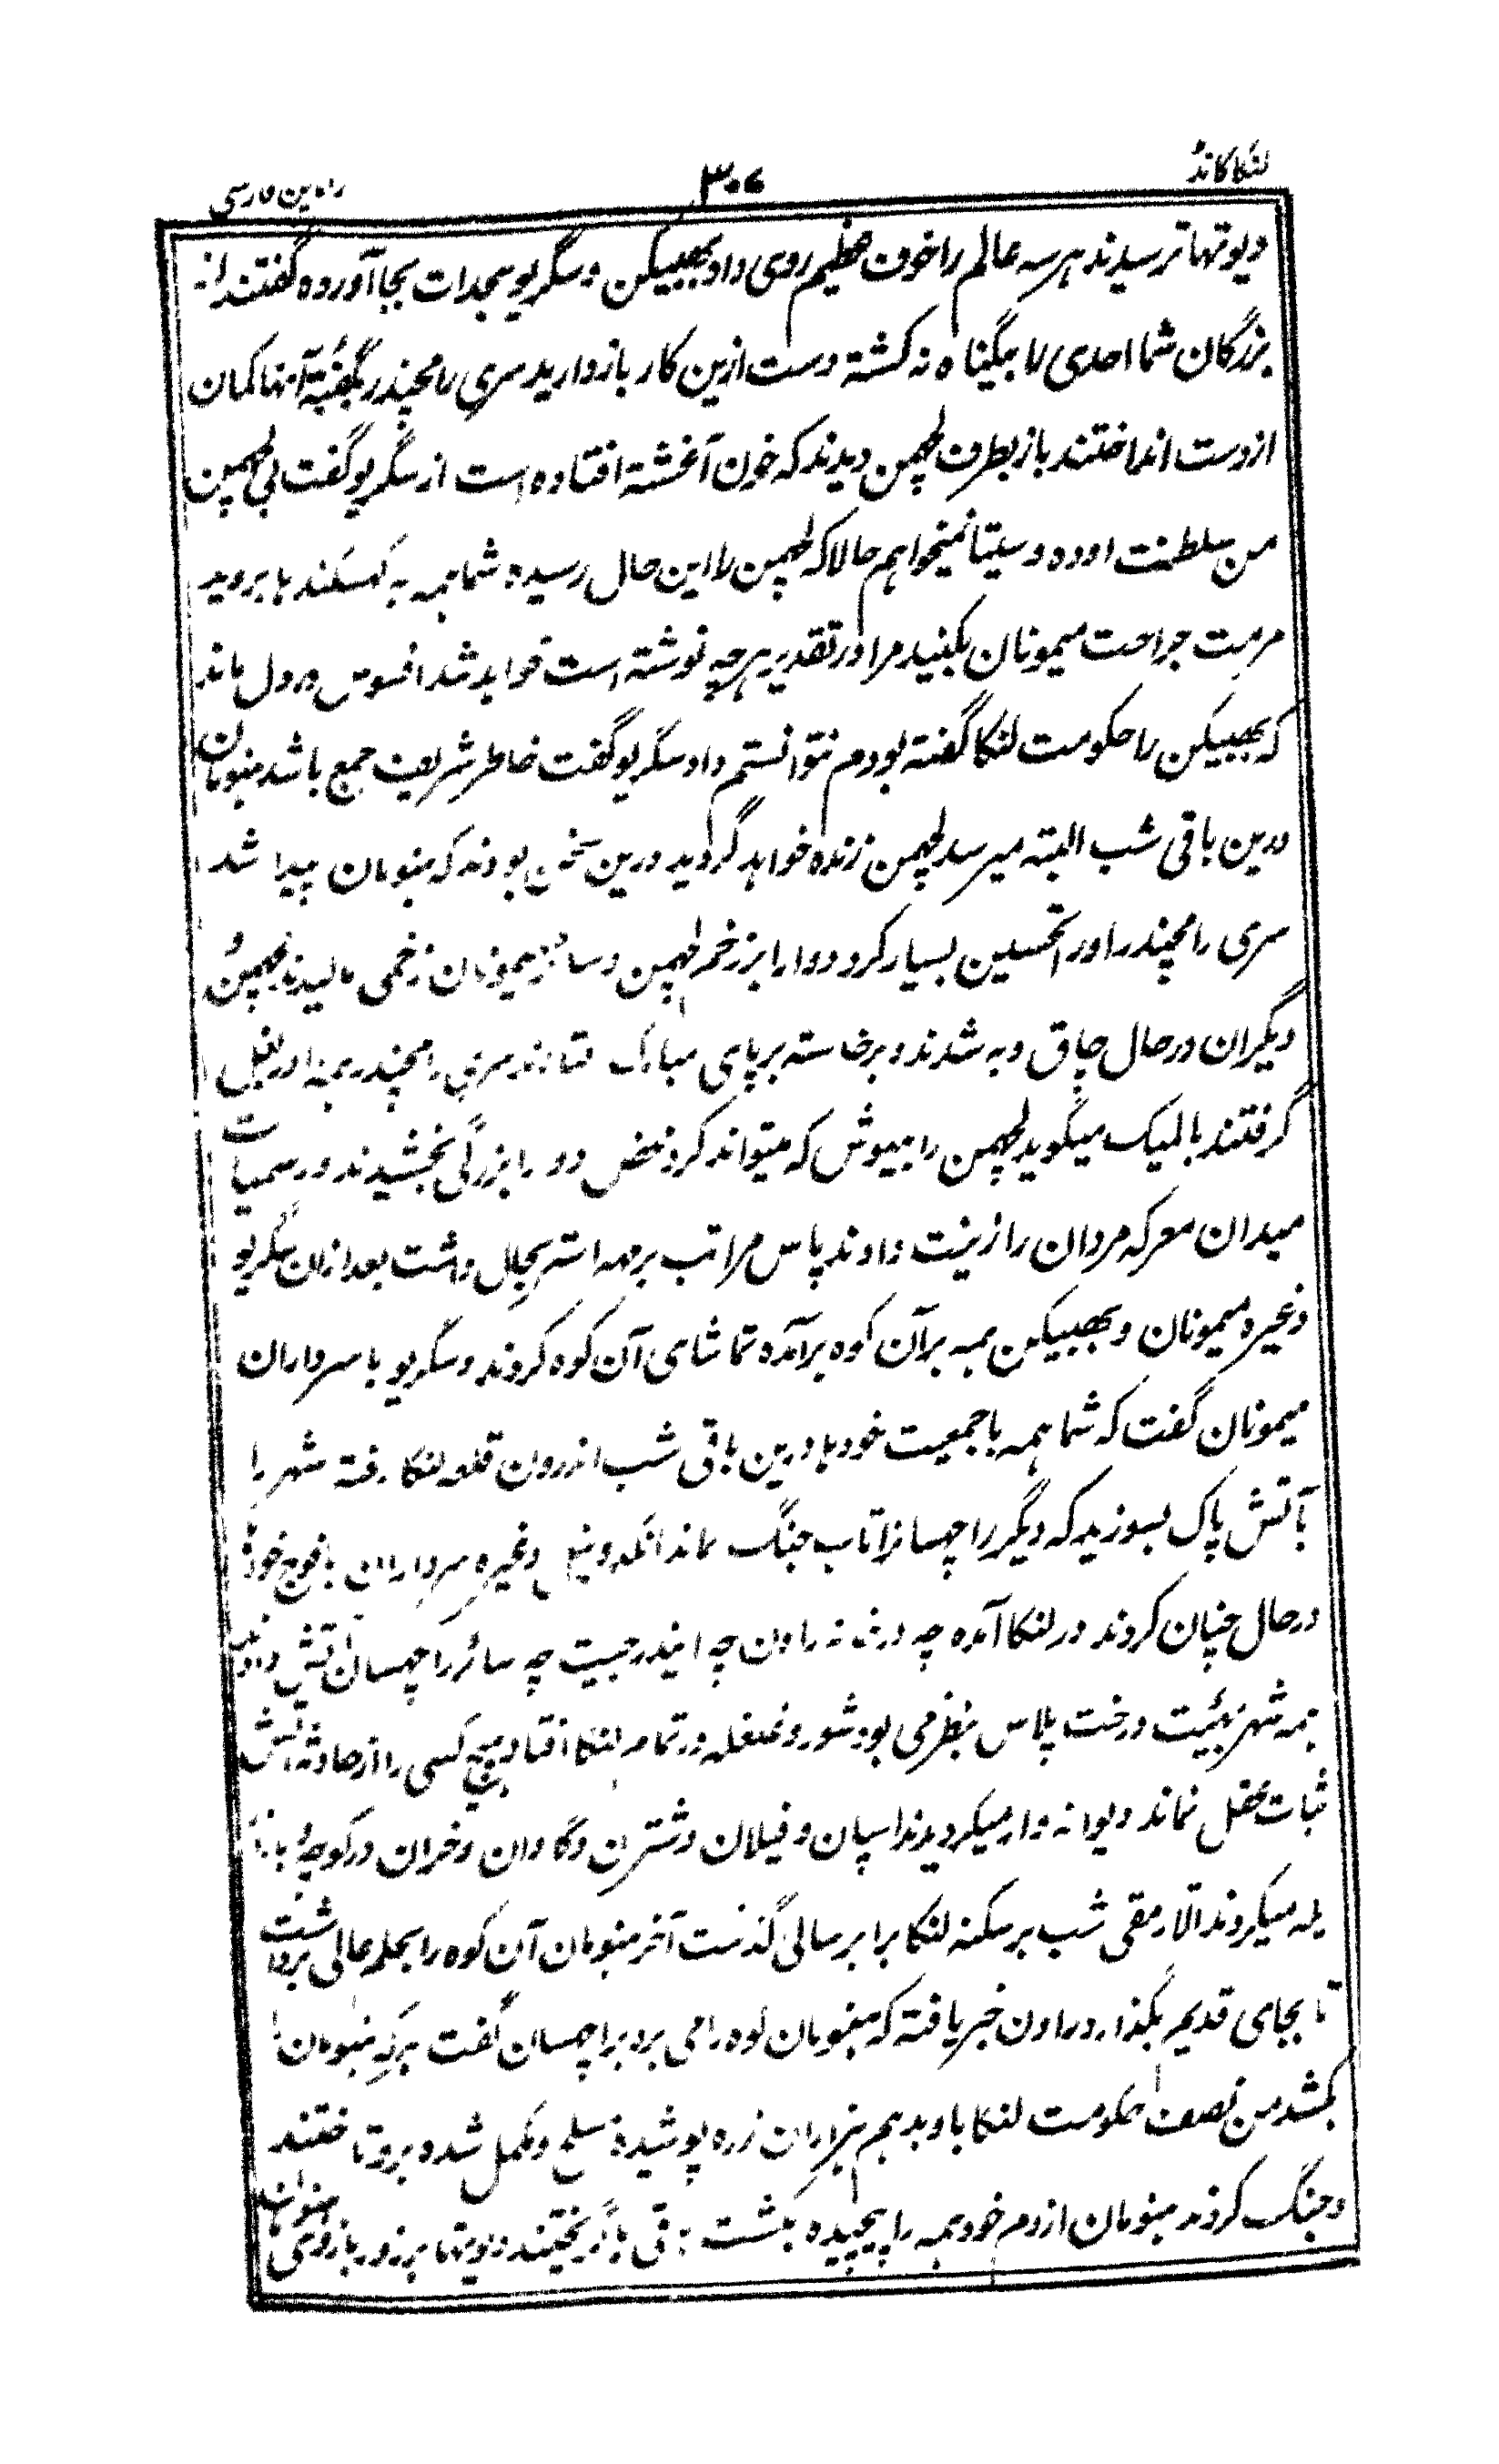 لنکاکانڈ
۳۰۷
راماین فارسی
دیوتهاترسیدند هرسه عالم را خوف عظیم روی داد بهبیکن وسگریو سجدات بجا آورده گفتند از
بزرگان شما احدی را بیگناه نه کشته دست ازین کار باز دارید سری رامچندر بگفتهٔ آنها کمان
از دست انداختند باز بطرف لچهمن دیدند که خون آغشته افتاده است از سگریو گفت بی لچهمن
من سلطنت اوده و سیتا نمیخواهم حالا که لچهمن را این حال رسیده شما همه به کسکندها بروید
مرمت جراحت میمونان بکنید مرا در تقدیر هرچه نوشته است خواهد شد افسوس در دل ماند
که بهبیکن را حکومت لنکا گفته بودم نتوانستم داد سگریو گفت خاطر شریف جمع باشد هنومان
درین باقی شب البته میرسد لچهمن زنده خواهد گردید درین سخن بودند که هنومان پیدا شد
سری رامچندر او را تحسین بسیار کرد دوا را بر زخم لچهمن و سائر میمونان زخمی مالیدند لچهمن و
دیگران در حال چاق و به شدند و برخاسته بر پای مبارک فتادند سری رامچندر همه را در بغل
گرفتند بالمیک میگوید لچهمن را بیهوش که میتواند کرد محض دوا را بزرگی بخشیدند و رسمیات
میدان معرکه مردان را زینت دادند پاس مراتب برمهه استر بحال داشت بعد ازان سگریو
وغیره میمونان و بهبیکن همه بر آن کوه برآمده تماشای آن کوه کردند و سگریو با سرداران
میمونان گفت که شما همه با جمعیت خودها درین باقی شب اندرون قلعه لنکا رفته شهر را
بآتش پاک بسوزید که دیگر راچسانرا تاب جنگ نماند انگد و نیل وغیره سرداران با فوج خود
درحال چنان کردند در لنکا آمده چه درخانه راون چه ایندرجیت چه سائر راچسان آتش دادند
همه شهر بهئیت درخت پلاس بنظر می بود شور و غلغله در تمام لنکا افتاد هیچ کسی را از حادثه آتش
ثبات عقل نماند دیوانه وار میگردیدند اسپان و فیلان و شتران و گاوان و خران در کوچه و بازار
یله میکردند القا رمقی شب بر سکنه لنکا برابر سالی گذشت آخر هنومان آن کوه را بحمله عالی برداشت
تا بجای قدیم بگذارد راون خبر یافته که هنومان کوه را می برد براچسان گفت هر که هنومان را
بکشد من نصف حکومت لنکا باو بدهم هزاران زره پوشیده مسلح و مکمل شده برو تاختند
وجنگ کردند هنومان از دم خود همه را پیچیده بکشت باقی با گریختند دیوتها بر زور بازوی هنومان